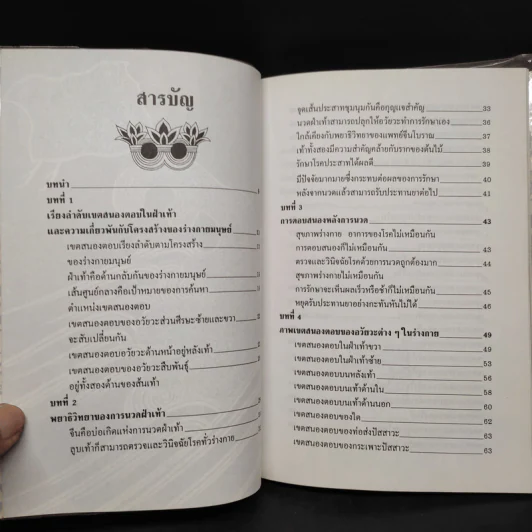 สารบัญ
บทนำ
บทที่ 1
เรียงลำดับเขตสนองตอบในฝ่าเท้า
และความเกี่ยวพันกับโครงสร้างของร่างกายมนุษย์
เขตสนองตอบเรียงลำดับตามโครงสร้าง
ของร่างกายมนุษย์
ฝ่าเท้าคือด้านกลับกันของร่างกายมนุษย์
เส้นศูนย์กลางคือเป้าหมายของการค้นหา
ตำแหน่งเขตสนองตอบ
เขตสนองตอบของอวัยวะส่วนศีรษะซ้ายและขวา
จะสับเปลี่ยนกัน
เขตสนองตอบอวัยวะด้านหน้าอยู่หลังเท้า
เขตสนองตอบของอวัยวะสืบพันธุ์
อยู่ทั้งสองด้านของส้นเท้า
บทที่ 2
พยาธิวิทยาของการนวดฝ่าเท้า
จีนคือบ่อเกิดแห่งการนวดฝ่าเท้า
ลูบเท้าก็สามารถตรวจและวินิจฉัยโรคทั่วร่างกาย
จุดเส้นประสาทชุมนุมกันคือกุญแจสำคัญ 33
นวดฝ่าเท้าสามารถปลุกให้อวัยวะทำการรักษาเอง 34
ใกล้เคียงกับพยาธิวิทยาของแพทย์จีนโบราณ 36
เท้าทั้งสองมีความสำคัญคล้ายกับรากของต้นไม้ 37
รักษาโรคประสาทได้ผลดี 38
มีปัจจัยมากมายซึ่งกระทบต่อผลของการรักษา 39
หลังจากนวดแล้วสามารถรับประทานยาต่อไป 41
บทที่ 3
การตอบสนองหลังการนวด 43
สุขภาพร่างกาย อาการของโรคไม่เหมือนกัน
การตอบสนองก็ไม่เหมือนกัน 43
ตรวจและวินิจฉัยโรคด้วยการนวดถูกต้องมาก 44
สุขภาพร่างกายไม่เหมือนกัน
การรักษาจะเห็นผลเร็วหรือช้าก็ไม่เหมือนกัน 45
หยุดรับประทานยาอย่างกะทันหันไม่ได้ 46
บทที่ 4
ภาพเขตสนองตอบของอวัยวะต่าง ๆ ในร่างกาย 49
เขตสนองตอบในฝ่าเท้าขวา 49
เขตสนองตอบในฝ่าเท้าซ้าย 53
เขตสนองตอบบนหลังเท้า 56
เขตสนองตอบบนเท้าด้านใน 58
เขตสนองตอบบนเท้าด้านนอก 60
เขตสนองตอบของไต 62
เขตสนองตอบของท่อส่งปัสสาวะ 63
เขตสนองตอบของกระเพาะปัสสาวะ 63